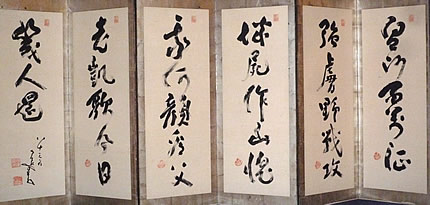 皇師百萬征
強虜野戰攻
城屍作山愧
我何顔看父
老凱歌今日
幾人還